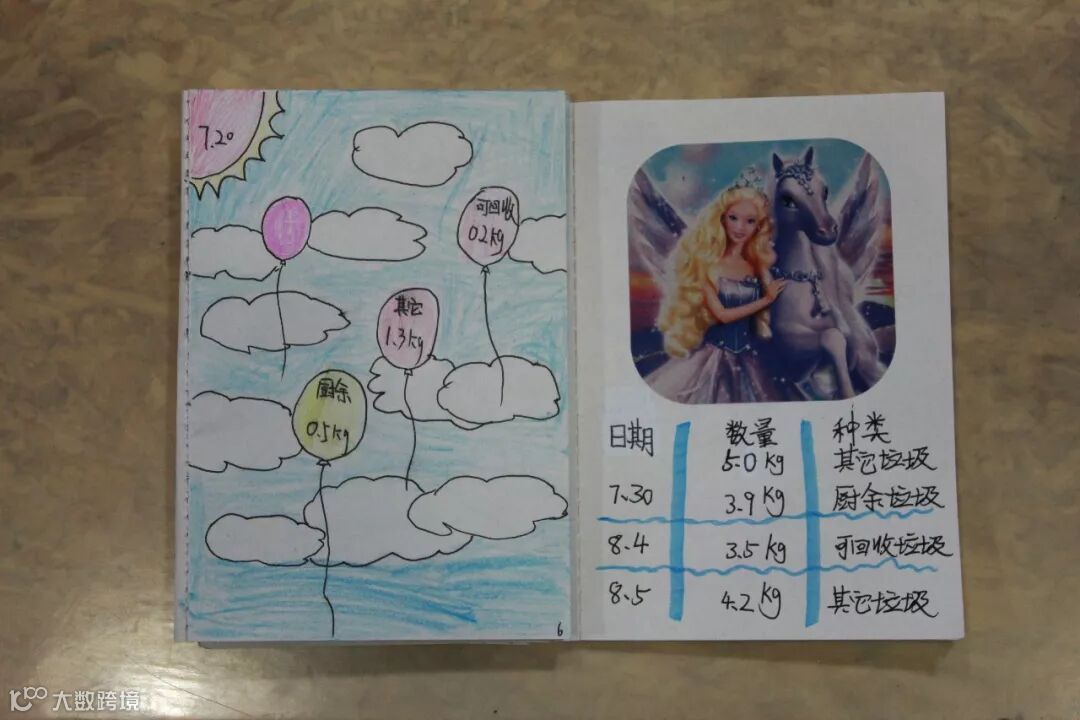 7.20
可回收
0.2kg
其它
1.3kg
厨余
0.5kg
6
日期 数量 种类
5.0kg 其它垃圾
7.30 3.9kg 厨余垃圾
8.4 3.5kg 可回收垃圾
8.5 4.2kg 其它垃圾
大数跨境